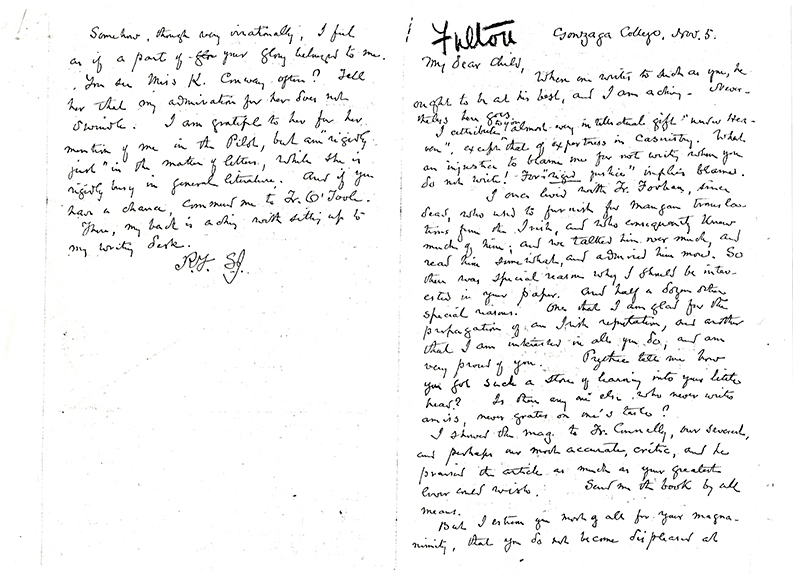 Somehow, though very irrationally, I feel
as if a part of your glory belonged to me.
You see Miss K. Conway often? Tell
her that my admiration for her does not
dwindle. I am grateful to her for her
mention of me in the Pilot, but am "rigidly
just" in the matter of letters, while she is
rigidly busy in general literature. And if you
have a chance, commend me to Fr. O'Toole.
There, my back is aching with sitting up to
my writing desk.
R.F. S.J.
Fulton
Gonzaga College, Nov. 5.
My dear Child,
When one writes to such as you, he
ought to be at his best, and I am aching. Never-
theless here goes.
I attribute to you "almost every intellectual gift "under Hea-
ven", except that of expertness in Casuistry. What
an injustice to blame me for not writing when you
do not write! For "rigid justice" implies blame.
I once lived with Fr. Forhan, since
dead, who used to furnish for Mangan transla-
tions from the Irish, and who consequently knew
much of him; and we talked him over much, and
read him somewhat, and admired him more. So
there was special reason why I should be inter-
ested in your paper. And half a dozen other
special reasons. One that I am glad for the
propagation of an Irish reputation, and another
that I am interested in all you do, and am
very proud of you. Prythee tell me how
you got such a store of learning into your little
head? Is there any one else who never writes
amiss, never grates on one's taste?
I showed the mag. to Fr. Connelly, our severest,
and perhaps our most accurate, critic, and he
praised the article as much as your greatest
lover could wish. Send me the book by all
means.
But I esteem you most of all for your magna-
nimity, that you do not become displeased at